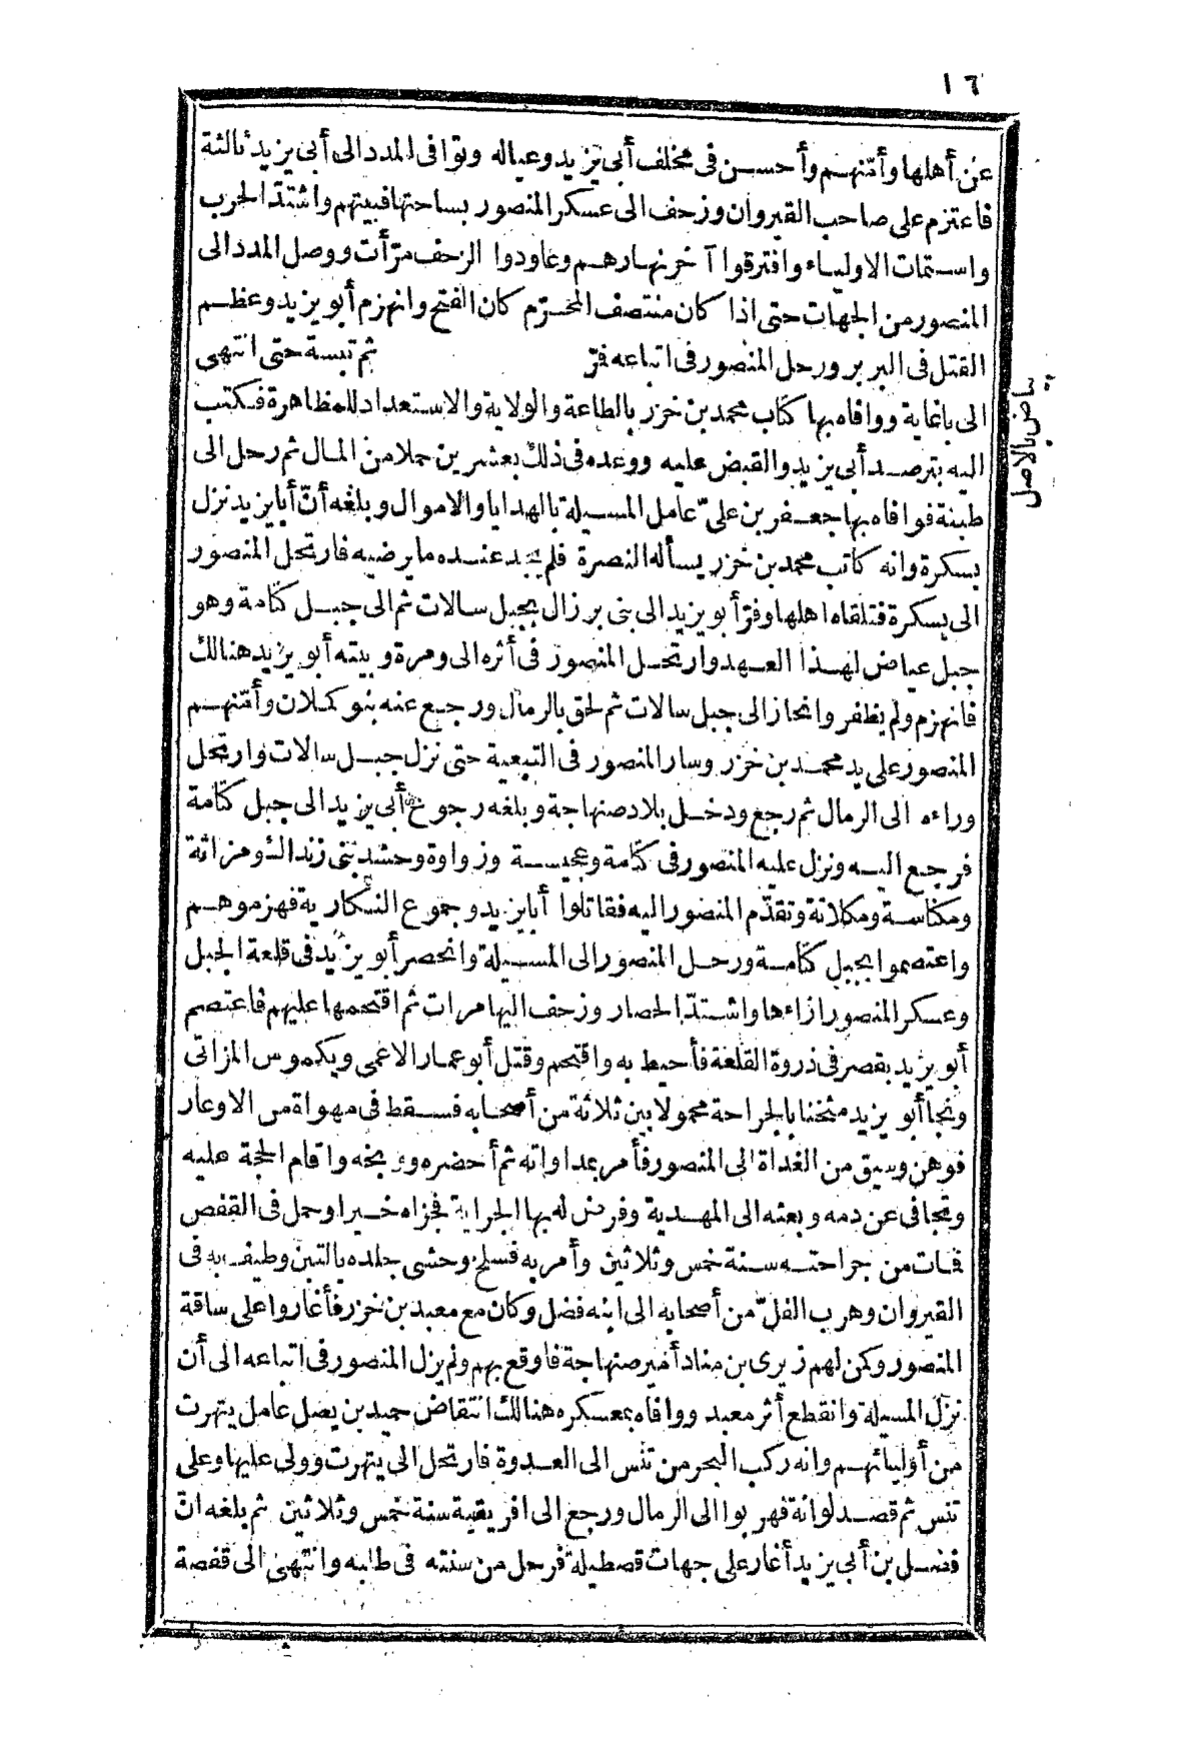 ١٦
عن أهلها وأمّنهم وأحسن فى مخلف أبى يزيد وعياله وتوافى المدد الى أبى يزيد ثالثة
فاعتزم على صاحب القيروان وزحف الى عسكر المنصور بساحتها فبيتهم واشتدّ الحرب
واستمات الاولياء وافترقوا آخر نهارهم وعاودوا الزحف مرّات ووصل المدد الى
المنصور من الجهات حتى اذا كان منتصف المحرّم كان الفتح وانهزم أبو يزيد وعظم
القتل فى البربر ورحل المنصور فى اتباعه فمرّ ثم تبسة حتى انتهى
الى باغاية ووافاه بها كتاب محمد بن خزر بالطاعة والولاية والاستعداد للمظاهرة فكتب
اليه بترصد أبى يزيد والقبض عليه ووعده فى ذلك بعشرين حملا من المال ثم رحل الى
طبنة فوافاه بها جعفر بن علىّ عامل المسيلة بالهدايا والاموال وبلغه أنّ أبا يزيد نزل
بسكرة وانه كاتب محمد بن خزر يسأله النصرة فلم يجد عنده ما يرضيه فارتحل المنصور
الى بسكرة فتلقاه اهلها وفرّ أبو يزيد الى بنى برزال بجبل سالات ثم الى جبل كتامة وهو
جبل عياض لهذا العهد وارتحل المنصور فى أثره الى ومرة وبيته أبو يزيد هنالك
فانهزم ولم يظفر وانحاز الى جبل سالات ثم لحق بالرمال ورجع عنه بنو كملان وأمّنهم
المنصور على يد محمد بن خزر وسار المنصور فى التبعية حتى نزل جبل سالات وارتحل
وراءه الى الرمال ثم رجع ودخل بلاد صنهاجة وبلغه رجوع أبى يزيد الى جبل كتامة
فرجع اليه ونزل عليه المنصور فى كتامة وعجيسة وزواوة وحشد بنى زنداك ومزاتة
ومكناسة ومكلاتة وتقدّم المنصور اليه فقاتلوا أبا يزيد وجموع النكارية فهزموهم
واعتصموا بجبل كتامة ورحل المنصور الى المسيلة وانحصر أبو يزيد فى قلعة الجبل
وعسكر المنصور ازاءها واشتدّ الحصار وزحف اليها مرات ثم اقتحمها عليهم فاعتصم
أبو يزيد بقصر فى ذروة القلعة فأحيط به واقتحم وقتل أبو عمار الاعمى ويكموس المزاتى
ونجا أبو يزيد مثخنا بالجراحة محمولا بين ثلاثة من أصحابه فسقط فى مهواة من الاوعار
فوهن وسيق من الغداة الى المنصور فأمر بمداواته ثم أحضره ووبخه واقام الحجة عليه
وتجافى عن دمه وبعثه الى المهدية وفرض له بها الجراية فجزاه خيرا وحمل فى القفص
فمات من جراحته سنة خمس وثلاثين وأمر به فسلخ وحشى جلده بالتبن وطيف به فى
القيروان وهرب الفلّ من أصحابه الى ابنه فضل وكان مع معبد بن خزر فأغاروا على ساقة
المنصور وكمن لهم زيرى بن مناد أمير صنهاجة فاوقع بهم ولم يزل المنصور فى اتباعه الى أن
نزل المسيلة وانقطع أثر معبد ووافاه بمعسكره هنالك انتقاض حميد بن يصل عامل يتهرت
من أوليائهم وانه ركب البحر من تنس الى العدوة فارتحل الى يتهرت وولى عليها وعلى
تنس ثم قصد لواتة فهربوا الى الرمال ورجع الى افريقية سنة خمس وثلاثين ثم بلغه انّ
فضل بن أبى يزيد أغار على جهات قصطيلة فرحل من سنته فى طلبه وانتهى الى قفصة
بياض بالاصل